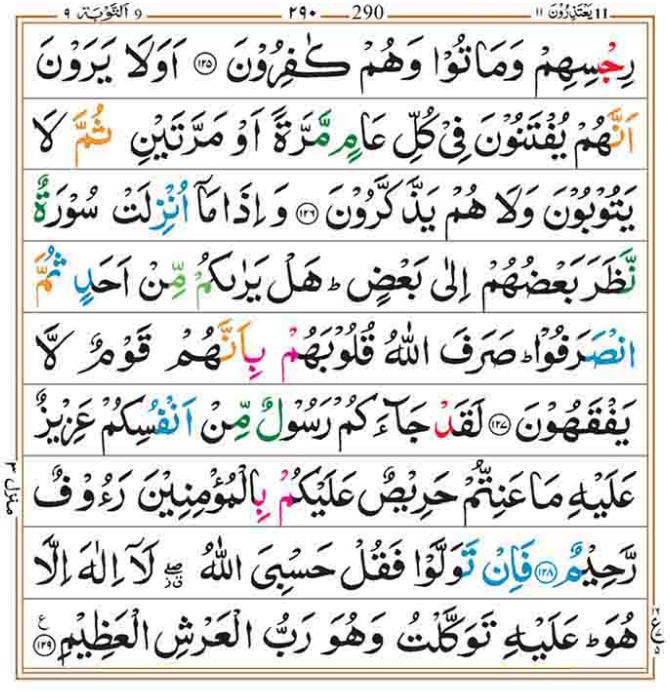 یَعْتَذِرُوْنَ ١١ 290 ٢٩٠ اَلتَّوْبَة ٩
رِجْسِهِمْ وَمَاتُوْا وَهُمْ كٰفِرُوْنَ ﴿۱۲۵﴾ اَوَلَا یَرَوْنَ
اَنَّهُمْ یُفْتَنُوْنَ فِیْ كُلِّ عَامٍ مَّرَّةً اَوْ مَرَّتَیْنِ ثُمَّ لَا
یَتُوْبُوْنَ وَلَا هُمْ یَذَّكَّرُوْنَ ﴿۱۲۶﴾ وَاِذَا مَاۤ اُنْزِلَتْ سُوْرَةٌ
نَّظَرَ بَعْضُهُمْ اِلٰی بَعْضٍ ؕ هَلْ یَرٰىكُمْ مِّنْ اَحَدٍ ثُمَّ
انْصَرَفُوْا ؕ صَرَفَ اللّٰهُ قُلُوْبَهُمْ بِاَنَّهُمْ قَوْمٌ لَّا
یَفْقَهُوْنَ ﴿۱۲۷﴾ لَقَدْ جَآءَكُمْ رَسُوْلٌ مِّنْ اَنْفُسِكُمْ عَزِیْزٌ
عَلَیْهِ مَا عَنِتُّمْ حَرِیْصٌ عَلَیْكُمْ بِالْمُؤْمِنِیْنَ رَءُوْفٌ
رَّحِیْمٌ ﴿۱۲۸﴾ فَاِنْ تَوَلَّوْا فَقُلْ حَسْبِیَ اللّٰهُ ۖؗ لَاۤ اِلٰهَ اِلَّا
هُوَ ؕ عَلَیْهِ تَوَكَّلْتُ وَهُوَ رَبُّ الْعَرْشِ الْعَظِیْمِ ﴿۱۲۹﴾ ع
منزل ٣